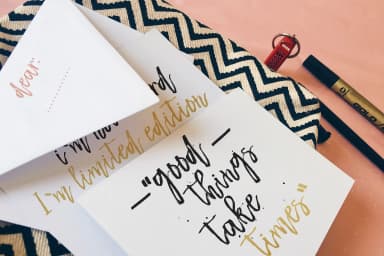 dear:
I'm
rd
I'm limited edition
"good
things
take
times"
GOLD